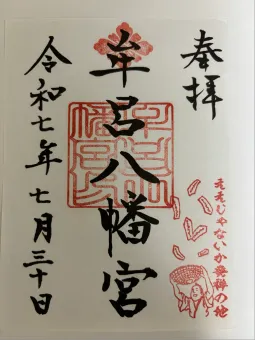 奉拝
牟呂八幡宮
令和七年七月三十日
ええじゃないか発祥の地